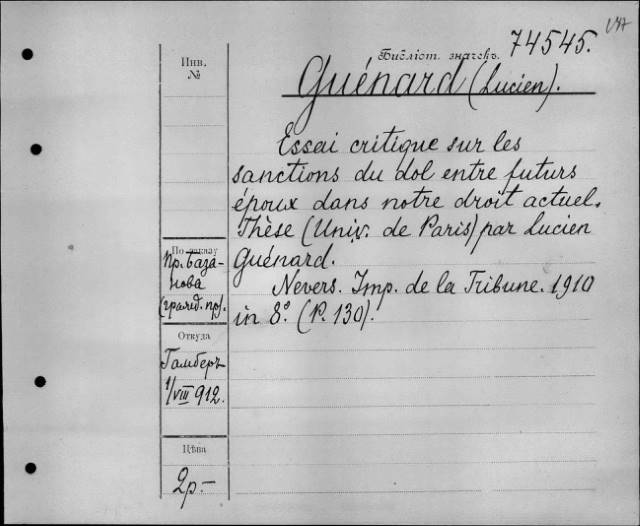 Библіот. значекъ. 74545.
Инв.
№
Guénard (Lucien).
Essai critique sur les
sanctions du dol entre futurs
époux dans notre droit actuel.
Thèse (Univ. de Paris) par Lucien
Guénard.
Nevers. Imp. de la Tribune. 1910
in 8º. (P. 130).
По заказу
пр. База-
нова
(гражд. пр).
Откуда
Гамберъ
1/VIII 912.
Цѣна
2р-